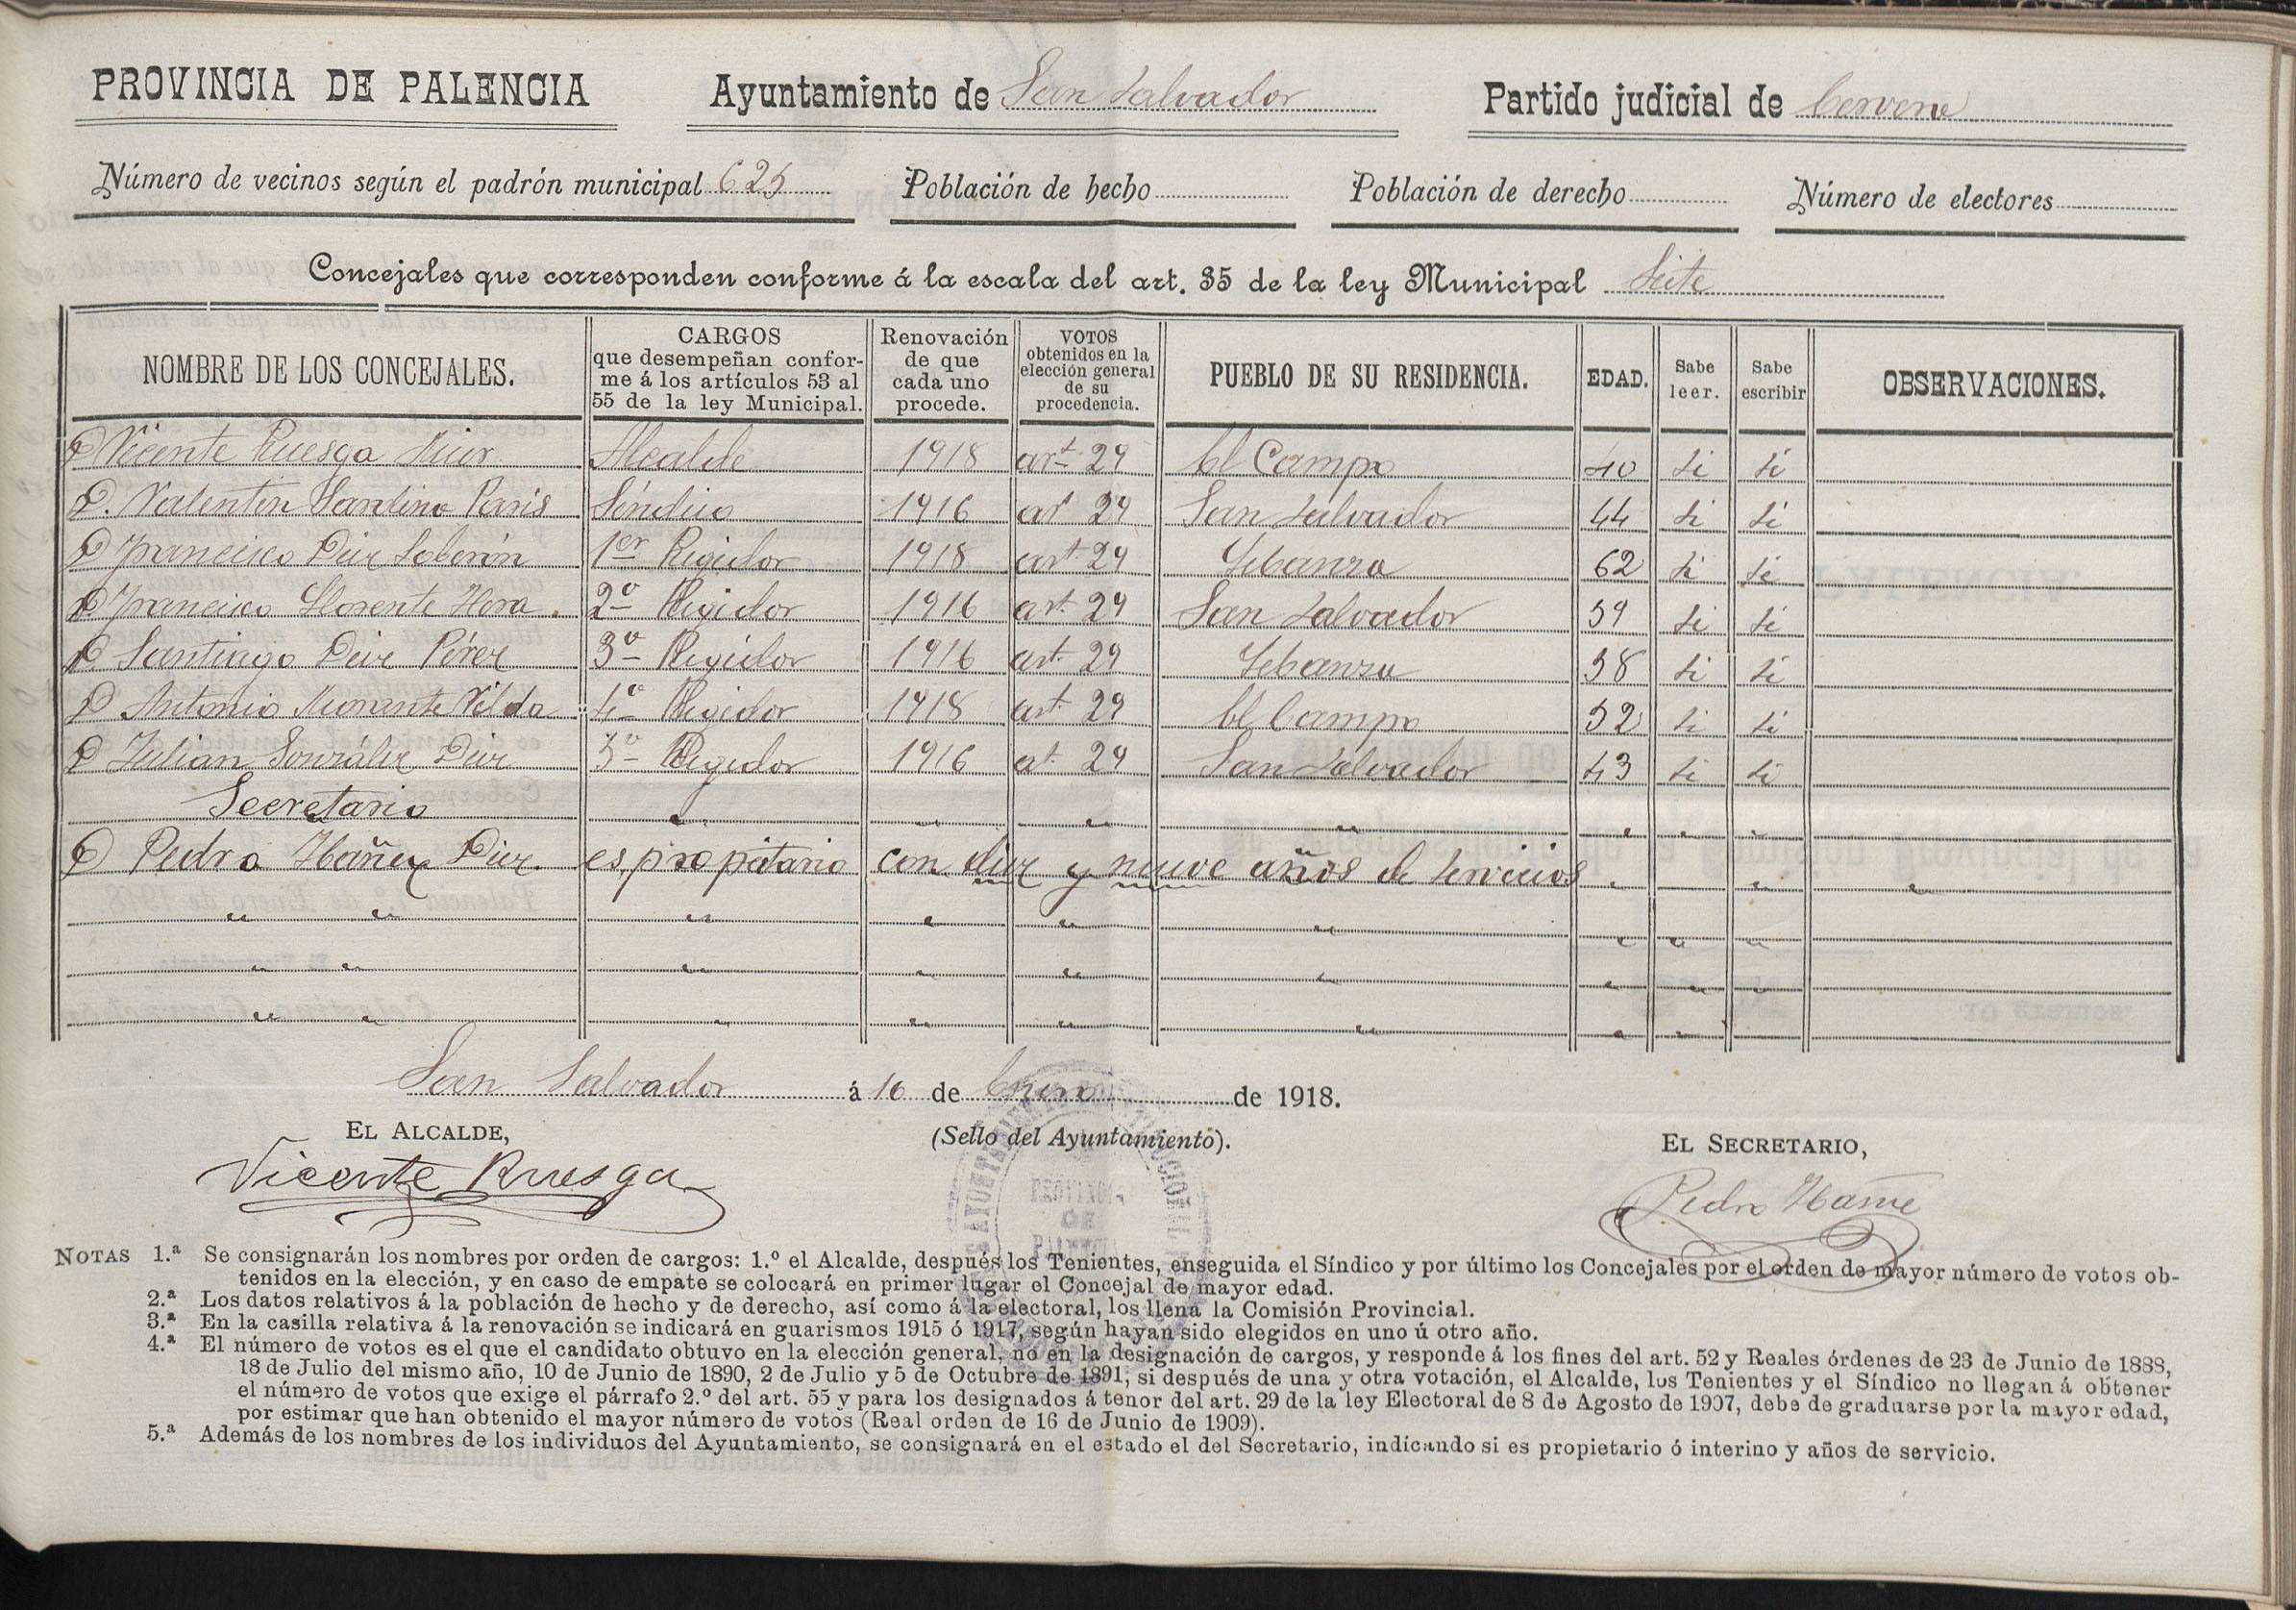 PROVINCIA DE PALENCIA Ayuntamiento de San Salvador Partido judicial de Cervera
Número de vecinos según el padrón municipal 625 Población de hecho Población de derecho Número de electores
Concejales que corresponden conforme á la escala del art. 35 de la ley Municipal Siete
NOMBRE DE LOS CONCEJALES. CARGOS que desempeñan conforme á los artículos 53 al 55 de la ley Municipal. Renovación de que cada uno procede. VOTOS obtenidos en la elección general de su procedencia. PUEBLO DE SU RESIDENCIA. EDAD. Sabe leer. Sabe escribir OBSERVACIONES.
D Vicente Ruesga Alcalde 1918 art 29 El Campo 40 si si
D. Valentin Sardina Paris Síndico 1916 art 29 San Salvador 44 si si
D Francisco Diez Soberón 1er Regidor 1918 art. 29 Lebanza 62 si si
D Francisco Llorente Hera 2º Regidor 1916 art. 29 San Salvador 59 si si
D Santiago Diez Pérez 3º Regidor 1916 art. 29 Lebanza 58 si si
D Antonio Morante Vilda 4º Regidor 1918 art. 29 El Campo 52 si si
D Julian González Diez 5º Regidor 1916 art. 29 San Salvador 43 si si
Secretario " " " " " " "
D Pedro Ibañez Diez. es propietario con diez y nueve años de servicios " " "
San Salvador á 16 de Enero de 1918.
EL ALCALDE, (Sello del Ayuntamiento). EL SECRETARIO,
Vicente Ruesga Pedro Ibañe
NOTAS 1.ª Se consignarán los nombres por orden de cargos: 1.º el Alcalde, después los Tenientes, enseguida el Síndico y por último los Concejales por el orden de mayor número de votos ob-
tenidos en la elección, y en caso de empate se colocará en primer lugar el Concejal de mayor edad.
2.ª Los datos relativos á la población de hecho y de derecho, así como á la electoral, los llena la Comisión Provincial.
3.ª En la casilla relativa á la renovación se indicará en guarismos 1915 ó 1917, según hayan sido elegidos en uno ú otro año.
4.ª El número de votos es el que el candidato obtuvo en la elección general, no en la designación de cargos, y responde á los fines del art. 52 y Reales órdenes de 23 de Junio de 1888,
18 de Julio del mismo año, 10 de Junio de 1890, 2 de Julio y 5 de Octubre de 1891; si después de una y otra votación, el Alcalde, los Tenientes y el Síndico no llegan á obtener
el número de votos que exige el párrafo 2.º del art. 55 y para los designados á tenor del art. 29 de la ley Electoral de 8 de Agosto de 1907, debe de graduarse por la mayor edad,
por estimar que han obtenido el mayor número de votos (Real orden de 16 de Junio de 1909).
5.ª Además de los nombres de los individuos del Ayuntamiento, se consignará en el estado el del Secretario, indicando si es propietario ó interino y años de servicio.